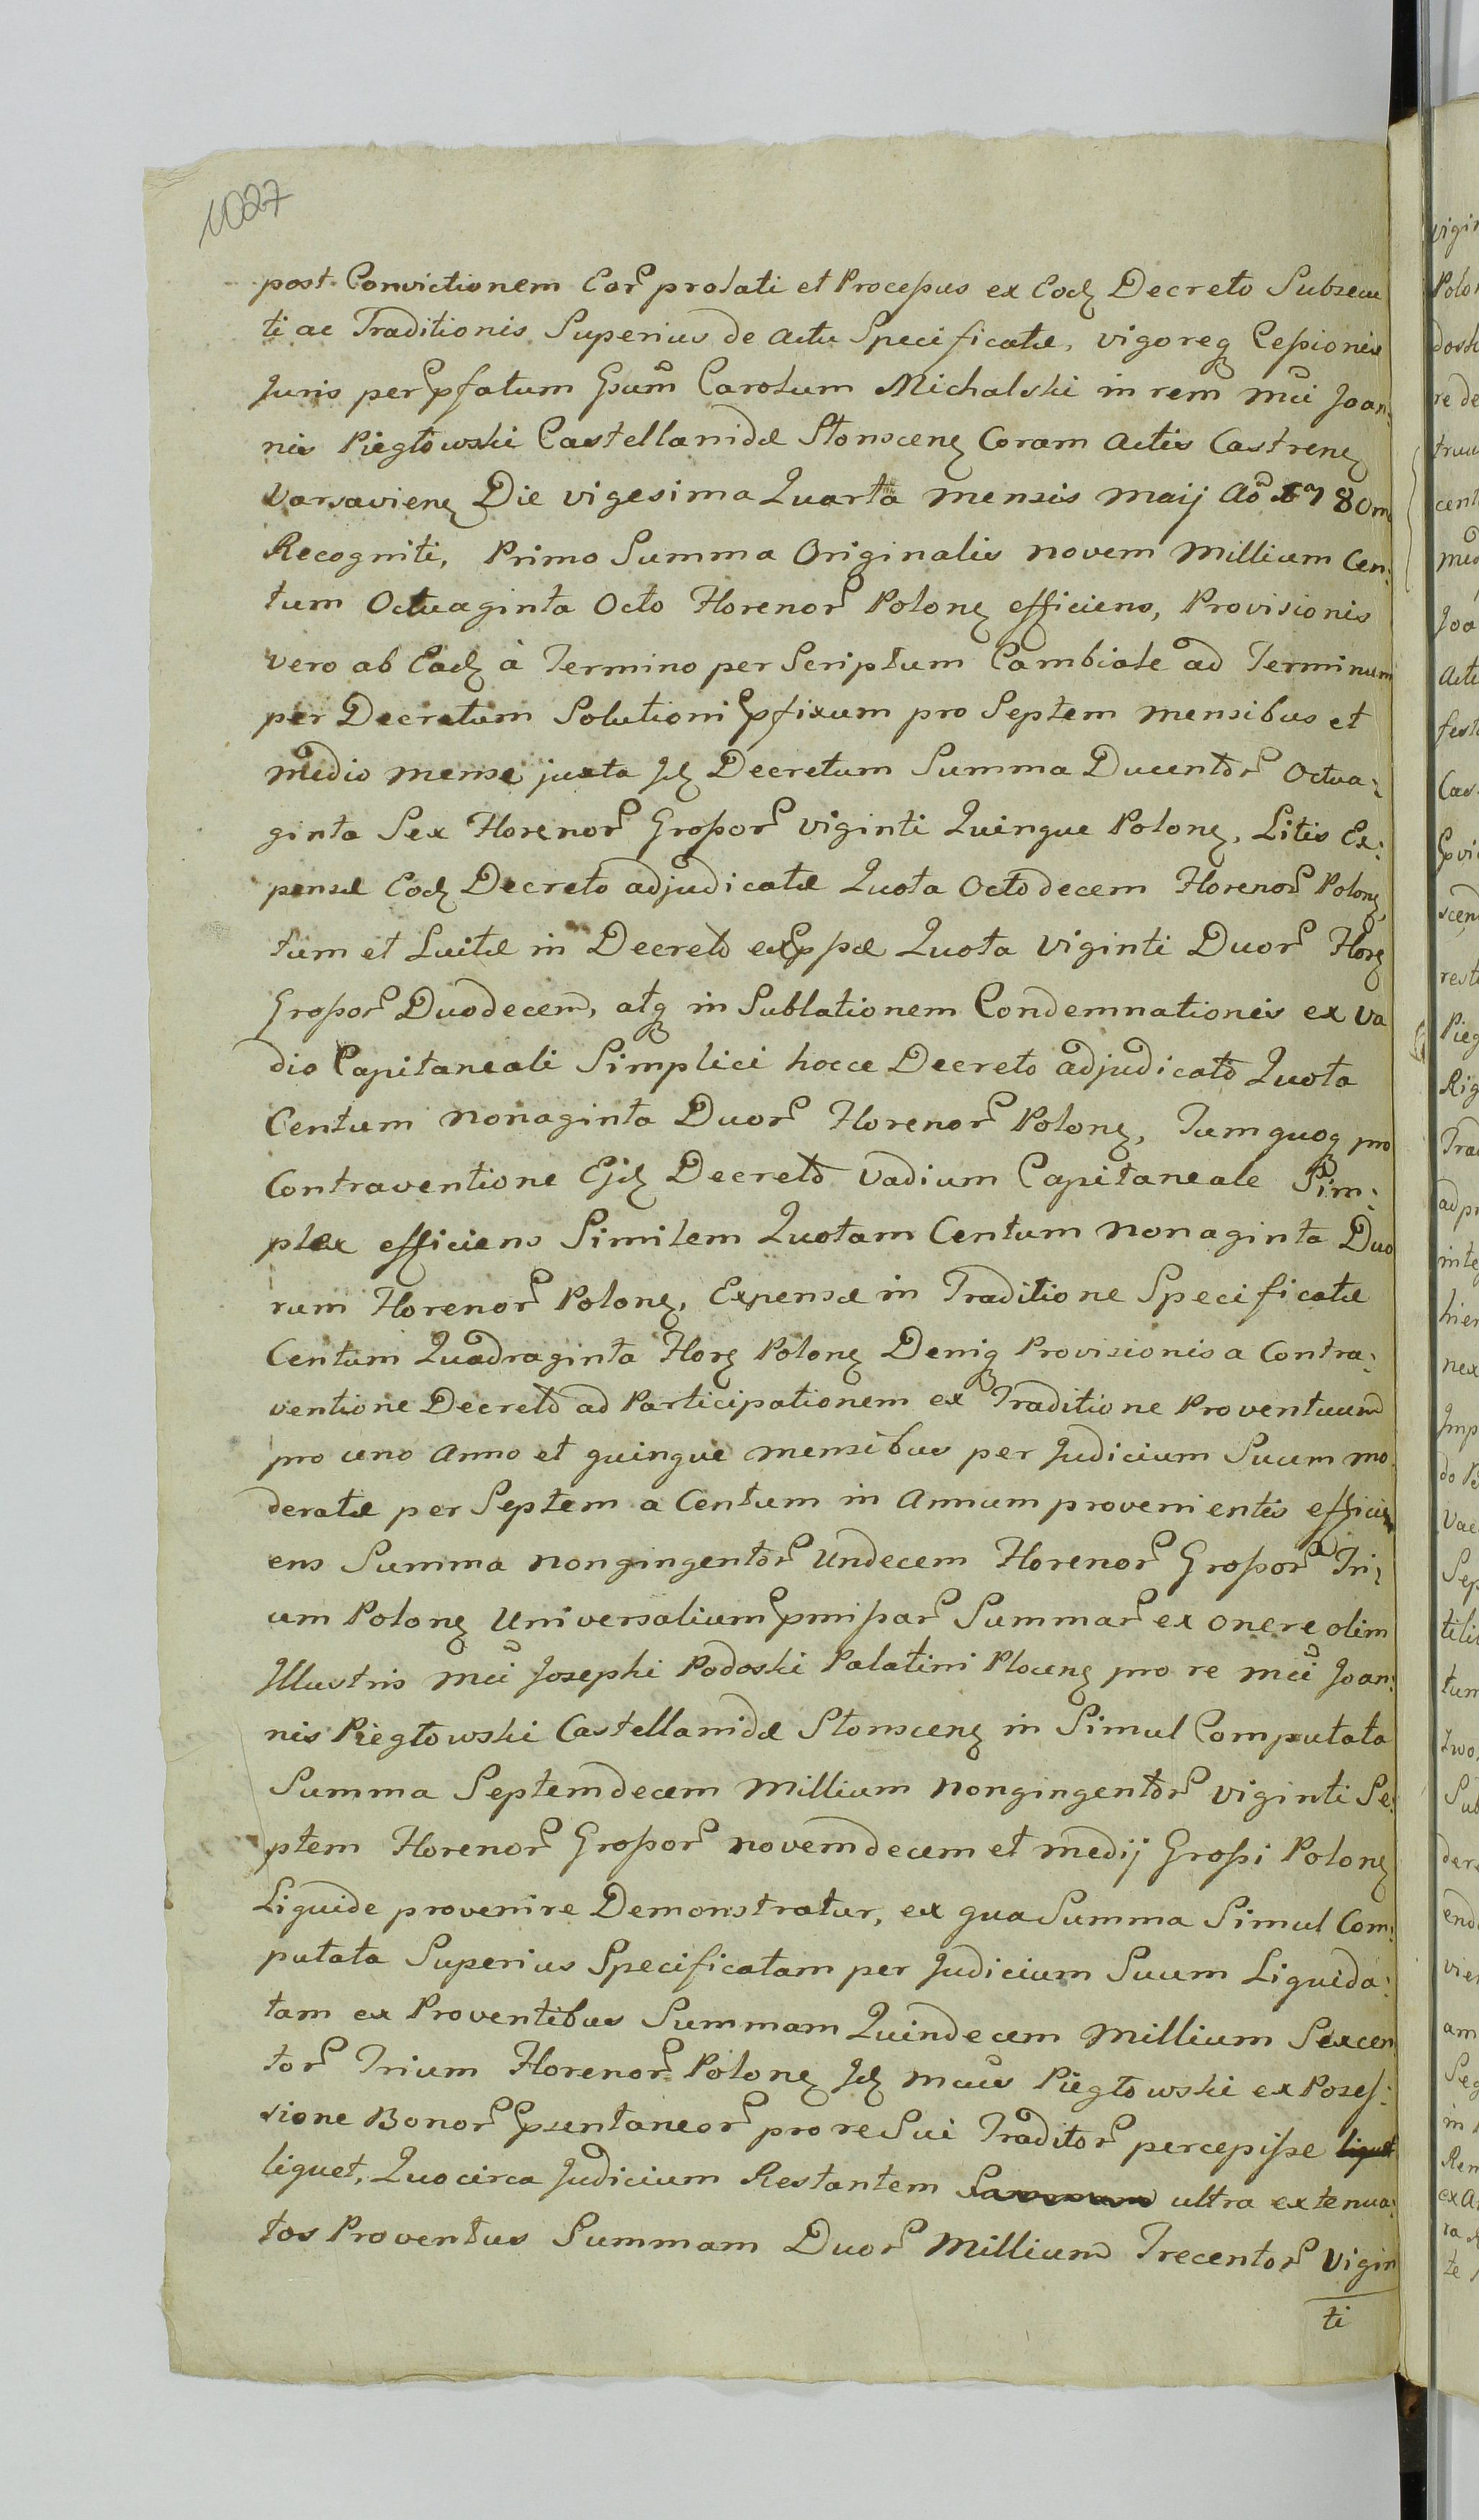 1027
post Convictionem Eor̃ prolati et Processus ex Eodꝫ Decreto Subsecu
ti ac Traditionis Superius de actu Specificatæ, vigoreqꝫ Cessionis
Juris per Prfatum Gsum̃ Carolum Michalski in rem Mci Joan:
nis Piegłowski Castellanidæ Słonscenꝫ Coram Actis Castrenꝫ
Varsavienꝫ Die vigesima Quarta mensis Maij Ao 1780m
Recogniti, Primo Summa Originalis novem Millium Cen:
tum Octuaginta Octo Florenor̃ Polonꝫ efficiens, Provisionis
vero ab Eadꝫ à Termino per Scriptum Cambiale ad Terminum
per Decretum Solutioni Prfixum pro Septem mensibus et
medio mense juxta Jdꝫ Decretum Summa Ducentor̃ Octua:
ginta Sex Florenor̃ Grossor̃ viginti Quinque Polonꝫ, Litis Ex:
pensæ Eodꝫ Decreto adjudicatæ Quota Octodecem Florenor̃ Polonꝫ,
tum et Luitæ in Decreto Quota viginti Duor̃ Florꝫ
Grossor̃ Duodecem, atqꝫ in Sublationem Condemnationis ex Va
dio Capitaneali Simplici hocce Decreto adjudicato Quota
Centum nonaginta Duor̃ Florenor̃ Polonꝫ, Tum quoqꝫ pro
Contraventione Ejdꝫ Decreto Vadium Capitaneale Sim:
plex efficiens Similem Quotam Centum nonaginta Duo
rum Florenor̃ Polonꝫ, Expensæ in Traditione Specificatæ
Centum Quadraginta Florꝫ Polonꝫ Deniqꝫ Provisionis a Contra:
ventione Decreto ad Participationem ex Traditione Proventuum
pro uno Anno et quinque mensibus per Judicium Suum mo
deratæ per Septem a Centum in Annum provenientis effici
ens Summa nongingentor̃ Undecem Florenor̃ Grossor̃ Tri:
um Polonꝫ Universalium Prmissar̃ Summar̃ ex onere olim
Jllustris Mci Josephi Podoski Palatini Plocenꝫ pro re Mci Joan:
nis Piegłowski Castellanidæ Słonscenꝫ in Simul Computata
Summa Septemdecem Millium Nongingentor̃ viginti Se:
ptem Florenor̃ Grossor̃ novemdecem et medij Grossi Polonꝫ
Liquide provenire Demonstratur, ex qua Summa Simul Com:
putata Superius Specificatam per Judicium Suum Liquida:
tam ex Proventibus Summam Quindecem Millium Sexcen
tor̃ Trium Florenor̃ Polonꝫ Jdꝫ Mcus Piegłowski ex Posses:
sione Bonor̃ Prsentaneor̃ pro re Sui Traditor̃ percepisse liquet
liquet, Quocirca Judicium Restantem Summam ultra extenua:
tos Proventus Summam Duor̃ Millium Trecentor̃ Vigin
ti